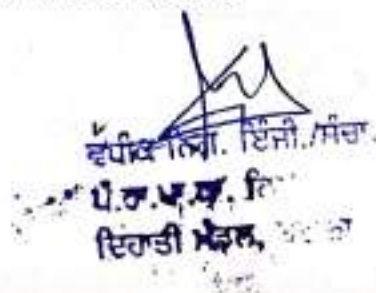 ਵਧੀਕ ਨਿਗ. ਇੰਜੀ./ਸੰਚਾ.
ਪੰ.ਰਾ.ਪਾ.ਕਾ. ਲਿ
ਦਿਹਾਤੀ ਮੰਡਲ,